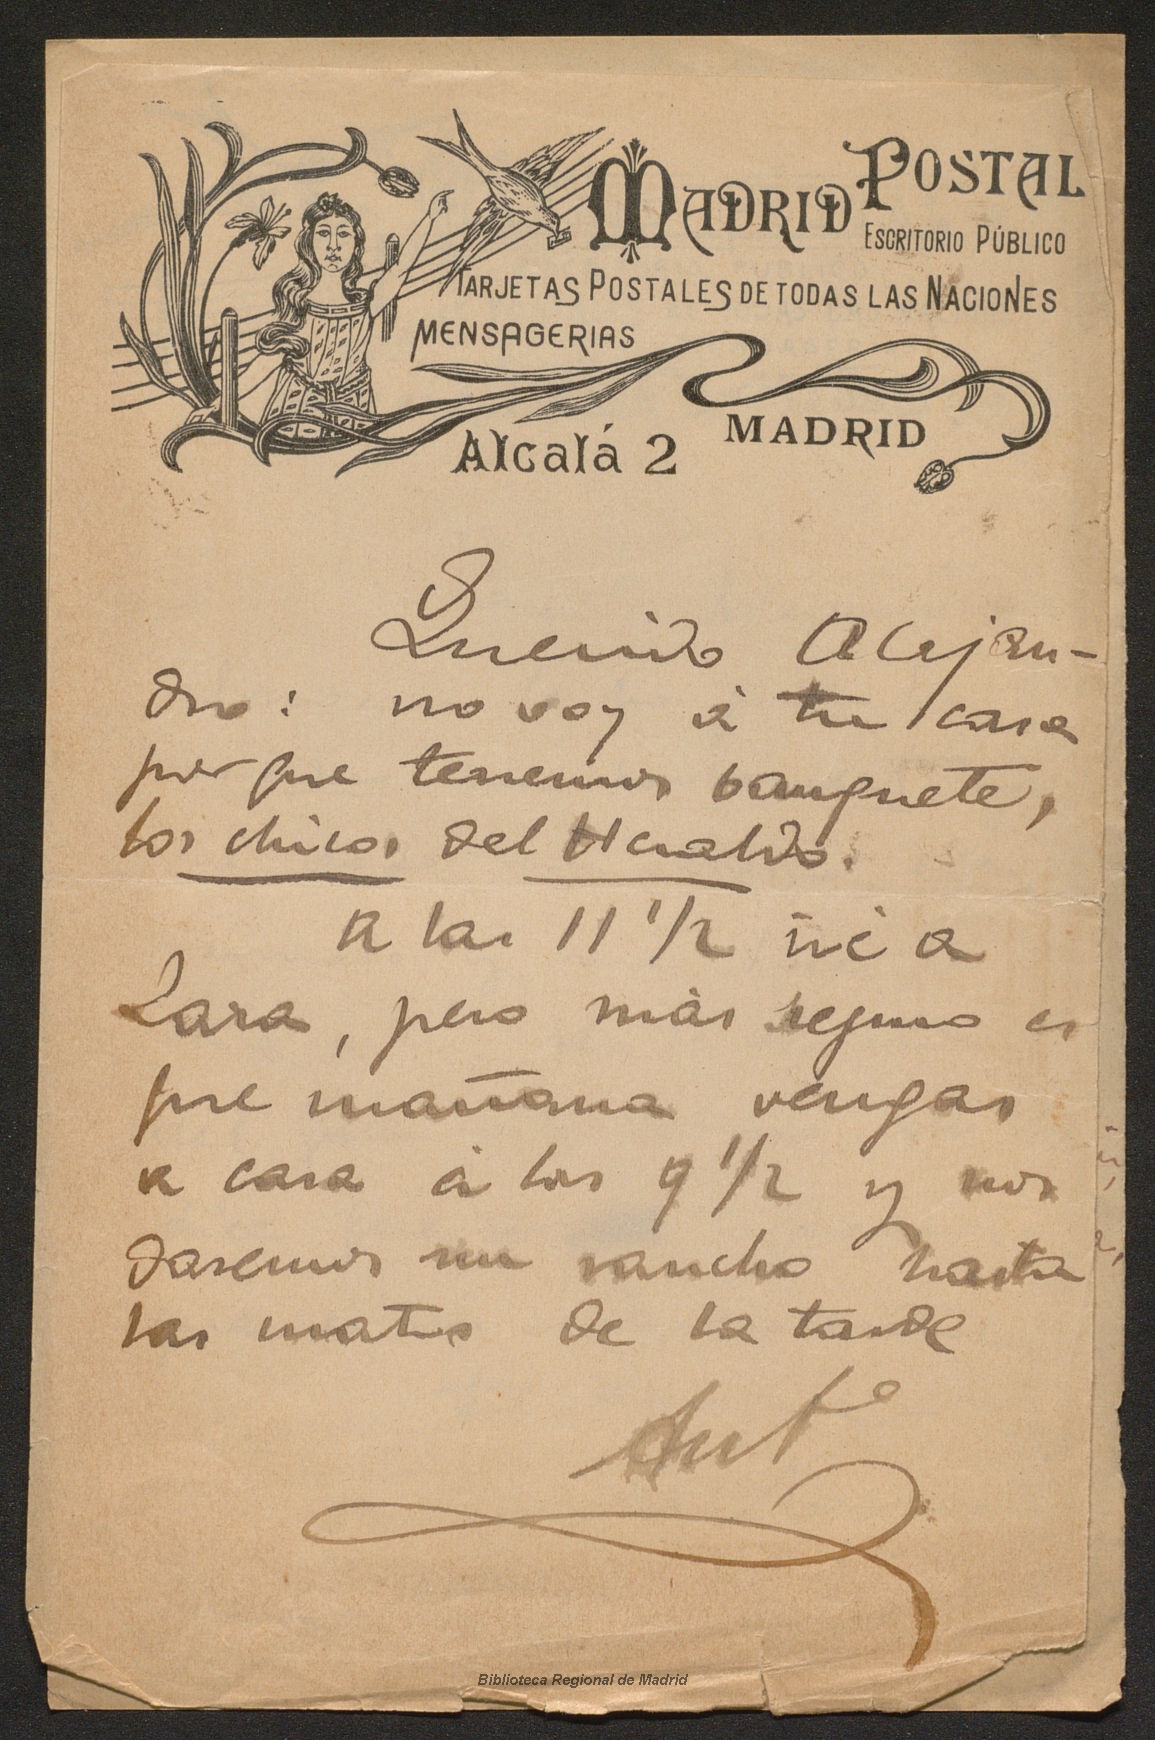 MADRID POSTAL
ESCRITORIO PÚBLICO
TARJETAS POSTALES DE TODAS LAS NACIONES
MENSAGERIAS
Alcalá 2 MADRID
Querido Alejan-
dro: no voy á tu casa
porque tenemos banquete,
los chicos del Heraldo.
A las 11 1/2 iré a
Lara, pero más seguro es
que mañana vengas
a casa á las 9 1/2 y nos
daremos un rancho hasta
las de la tarde
Antº
Biblioteca Regional de Madrid